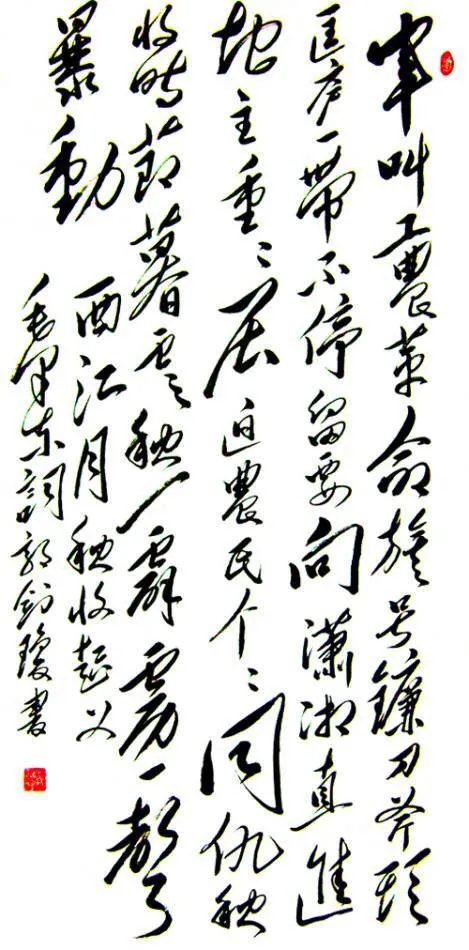 军叫工農革命旗号鐮刀斧頭
匡庐一帶不停留要向瀟湘直進
地主重〻压迫農民个〻同仇秋
收時節暮雲愁霹靂一聲
暴動
西江月 秋收起义
毛泽东詞 書